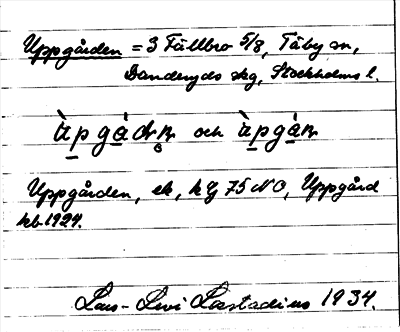 Uppgården = 3 Fällbro 5/8, Täby sn,
Danderyds skg, Stockholms l.
och
Uppgården, ek, k Y 75 NO, Uppgård
kb 1927.
Lars-Levi Læstadius 1934.